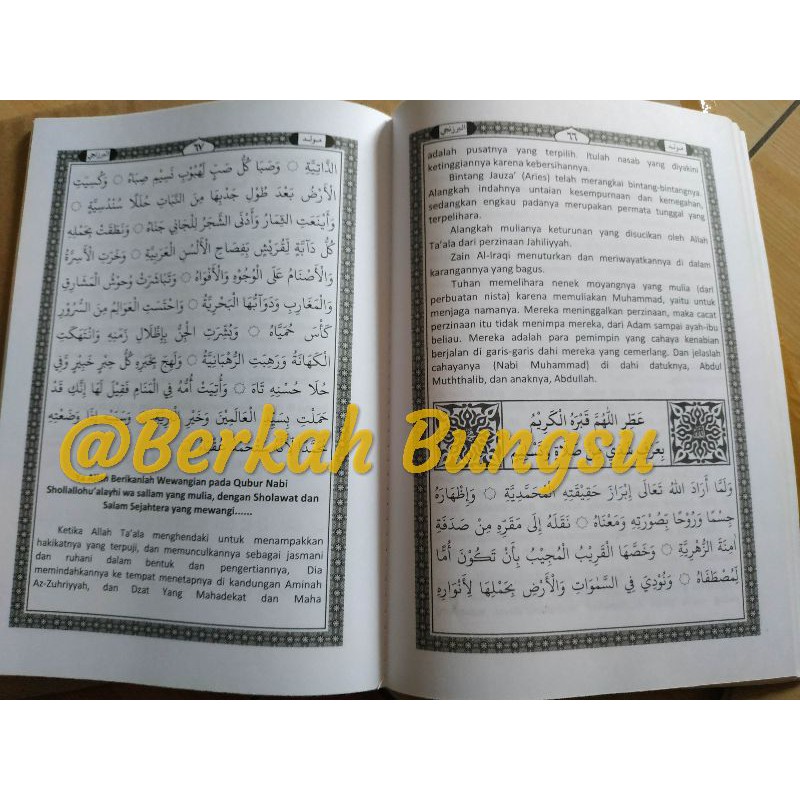 مولد
٦٦
البرزنجي
adalah pusatnya yang terpilih. Itulah nasab yang diyakini
ketinggiannya karena kebersihannya.
Bintang Jauza' (Aries) telah merangkai bintang-bintangnya.
Alangkah indahnya untaian kesempurnaan dan kemegahan,
sedangkan engkau padanya merupakan permata tunggal yang
terpelihara.
Alangkah mulianya keturunan yang disucikan oleh Allah
Ta'ala dari perzinaan Jahiliyyah.
Zain Al-Iraqi menuturkan dan meriwayatkannya di dalam
karangannya yang bagus.
Tuhan memelihara nenek moyangnya yang mulia (dari
perbuatan nista) karena memuliakan Muhammad, yaitu untuk
menjaga namanya. Mereka meninggalkan perzinaan, maka cacat
perzinaan itu tidak menimpa mereka, dari Adam sampai ayah-ibu
beliau. Mereka adalah para pemimpin yang cahaya kenabian
berjalan di garis-garis dahi mereka yang cemerlang. Dan jelaslah
cahayanya (Nabi Muhammad) di dahi datuknya, Abdul
Muththalib, dan anaknya, Abdullah.
عَطِّرِ اللّٰهُمَّ قَبْرَهُ الْكَرِيْمُ
وَلَمَّا أَرَادَ اللهُ تَعَالَى إِبْرَازَ حَقِيْقَتِهِ الْمُحَمَّدِيَّةِ ۞ وَإِظْهَارَهُ
جِسْمًا وَرُوْحًا بِصُوْرَتِهِ وَمَعْنَاهُ ۞ نَقَلَهُ إِلَى مَقَرِّهِ مِنْ صَدَفَةِ
اٰمِنَةَ الزُّهْرِيَّةِ ۞ وَخَصَّهَا الْقَرِيْبُ الْمُجِيْبُ بِأَنْ تَكُوْنَ أُمًّا
لِمُصْطَفَاهُ ۞ وَنُوْدِيَ فِي السَّمٰوَاتِ وَالْأَرْضِ بِحَمْلِهَا لِأَنْوَارِهِ
مولد
٦٧
البرزنجي
الذَّاتِيَّةِ ۞ وَصَبَا كُلُّ صَبٍّ لِهُبُوْبِ نَسِيْمِ صَبَاهُ ۞ وَكُسِيَتِ
الْأَرْضُ بَعْدَ طُوْلِ جَدْبِهَا مِنَ النَّبَاتِ حُلَلًا سُنْدُسِيَّةً ۞
وَأَيْنَعَتِ الثِّمَارُ وَأَدْنَى الشَّجَرُ لِلْجَانِيْ جَنَاهُ ۞ وَنَطَقَتْ بِحَمْلِهِ
كُلُّ دَآبَّةٍ لِقُرَيْشٍ بِفِصَاحِ الْأَلْسُنِ الْعَرَبِيَّةِ ۞ وَخَرَّتِ الْأَسِرَّةُ
وَالْأَصْنَامُ عَلَى الْوُجُوْهِ وَالْأَفْوَاهِ ۞ وَتَبَاشَرَتْ وُحُوْشُ الْمَشَارِقِ
وَالْمَغَارِبِ وَدَوَآبُّهَا الْبَحْرِيَّةُ ۞ وَاحْتَسَتِ الْعَوَالِمُ مِنَ السُّرُوْرِ
كَأْسَ حُمَيَّاهُ ۞ وَبُشِّرَتِ الْجِنُّ بِإِظْلَالِ زَمَنِهِ وَانْتُهِكَتِ
الْكَهَانَةُ وَرَهِبَتِ الرُّهْبَانِيَّةُ ۞ وَلَهِجَ بِخَبَرِهِ كُلُّ حِبْرٍ خَبِيْرٍ وَفِيْ
حُلَا حُسْنِهِ تَاهَ ۞ وَأُتِيَتْ أُمُّهُ فِي الْمَنَامِ فَقِيْلَ لَهَا إِنَّكِ قَدْ
حَمَلْتِ بِسَيِّدِ الْعَالَمِيْنَ وَخَيْرِ
Berikanlah Wewangian pada Qubur Nabi
Shollallohu'alayhi wa sallam yang mulia, dengan Sholawat dan
Salam Sejahtera yang mewangi......
Ketika Allah Ta'ala menghendaki untuk menampakkan
hakikatnya yang terpuji, dan memunculkannya sebagai jasmani
dan ruhani dalam bentuk dan pengertiannya, Dia
memindahkannya ke tempat menetapnya di kandungan Aminah
Az-Zuhriyyah, dan Dzat Yang Mahadekat dan Maha
@Berkah Bungsu